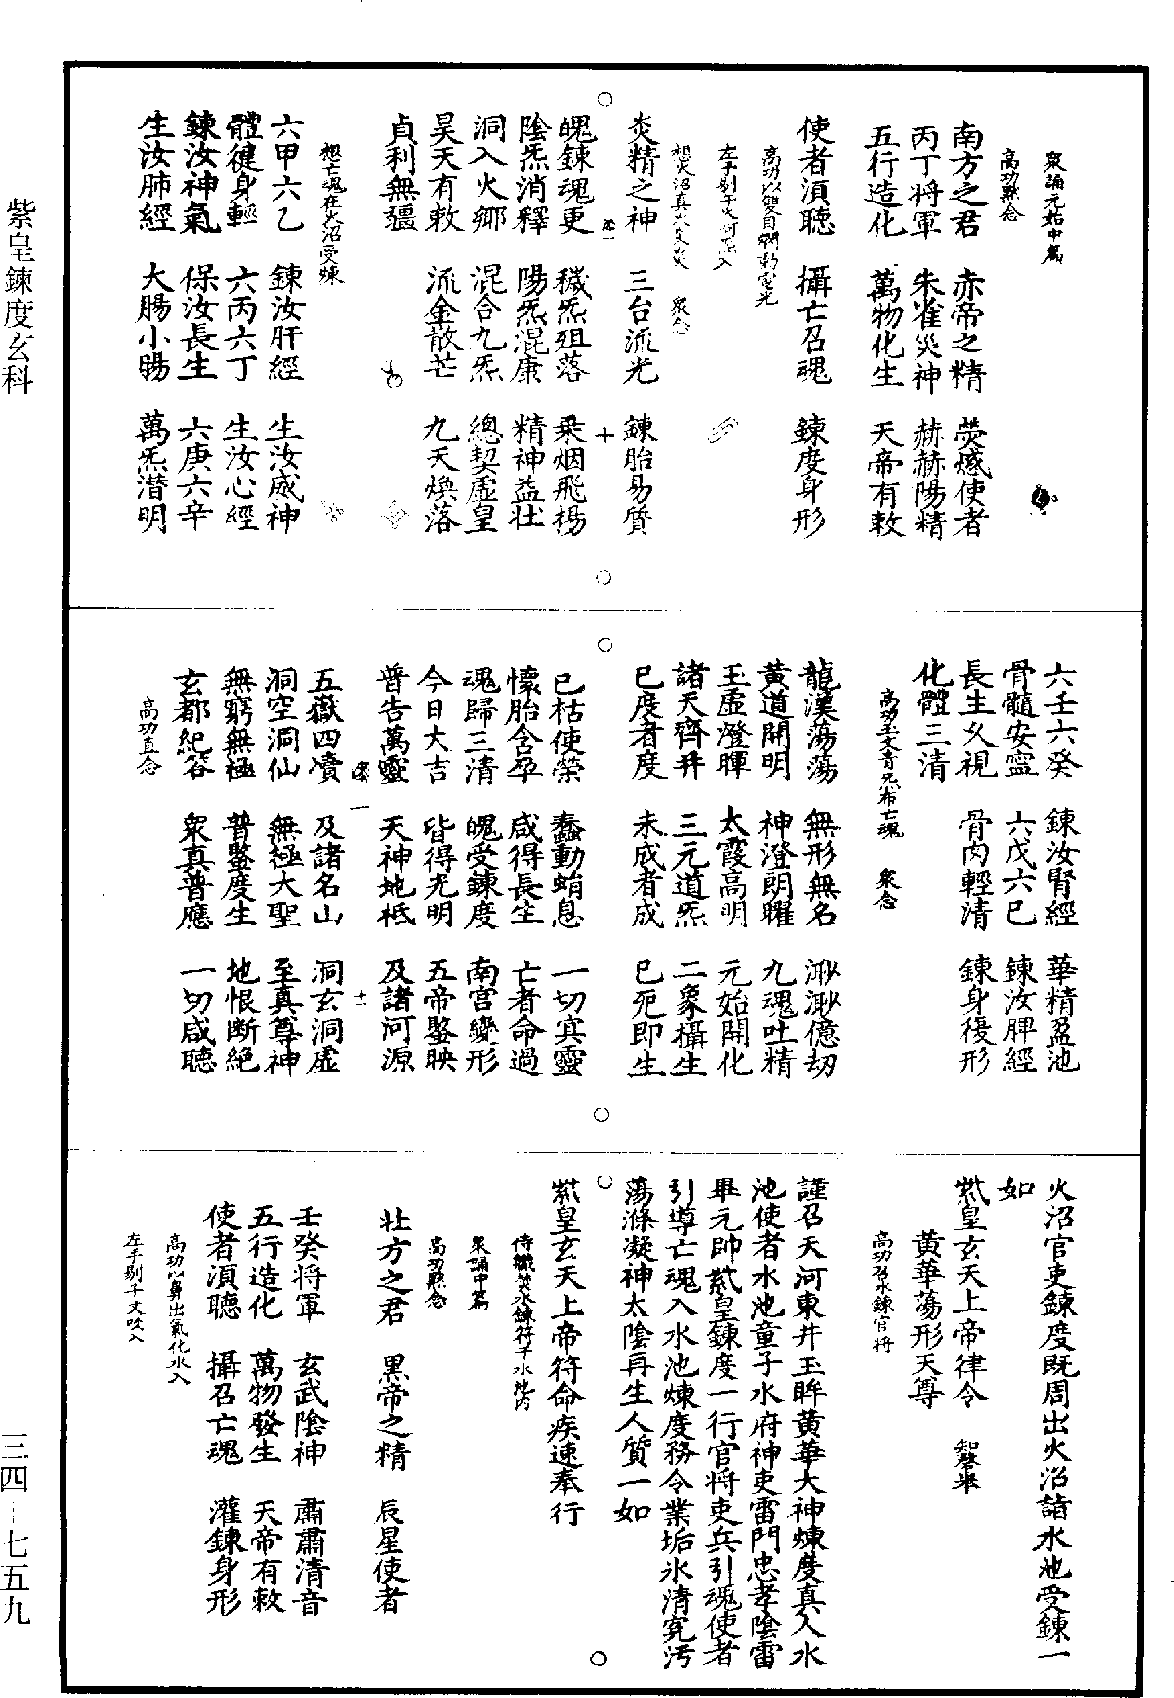 紫皇鍊度玄科
三四-七五九
眾誦元始中篇
高功默念
南方之君　赤帝之精　熒惑使者
丙丁將軍　朱雀災神　赫赫陽精
五行造化　萬物化生　天帝有敕
使者湏聽　攝亡召魂　鍊度身形
高功以雙目
左手剔午文
想火沼真火炎炎　眾念
炎精之神　三台流光　鍊胎易質
魄鍊魂更　穢炁殂落　乘烟飛揚
陰炁消釋　陽炁混康　精神益壯
洞入火鄉　混合九炁　總契虛皇
昊天有敕　流金散芒　九天煥落
貞利無彊
想亡魂在火沼受煉
六甲六乙　鍊汝肝經　生汝威神
體健身輕　六丙六丁　生汝心經
鍊汝神氣　保汝長生　六庚六辛
生汝肺經　大腸小腸　萬炁潛明
六壬六癸　鍊汝腎經　華精盈池
骨髓安寧　六戊六己　鍊汝脾經
長生乆視　骨肉輕清　鍊身復形
化體三清
高功玉文青炁布亡魂　眾念
龍漢蕩蕩　無形無名　渺渺億劫
黃道開明　神澄朗曜　九魂吐精
玉虛燈暉　太霞高明　元始開化
諸天齊并　三元道炁　二象攝生
已度者度　未成者成　已死即生
已枯使榮　蠢動蛸息　一切冥靈
懷胎含孕　咸得長生　亡者命過
魂歸三清　魄受鍊度　南宮變形
今日大吉　皆得光明　五帝鑒映
普告萬靈　天神地祗　及諸河源
五嶽四凟　及諸名山　洞玄洞虛
洞空洞仙　無極大聖　至真尊神
無窮無極　普鑒度生　地恨斷絕
玄都紀谷　眾真普應　一切咸聽
高功直念
火沼官吏鍊度既周出火沼詣水池受鍊一
如
紫皇玄天上帝律令　知磬舉
黃華蕩形天尊
高功召水鍊官將
謹召天河東井玉眸黃華大神煉度真人水
池使者水池童子水府神吏雷門忠孝陰雷
畢元帥紫皇鍊度一行官將吏兵引魂使者
引導亡魂入水池煉度務令業垢氷清㝃汚
蕩滌凝神太陰再生人質一如
紫皇玄天上帝符命疾速奉行
侍職焚水鍊符于水池內
眾誦中篇
高功默念
壯方之君　黑帝之精　辰星使者
壬癸將軍　玄武陰神　肅肅清音
五行造化　萬物發生　天帝有敕
使者湏聽　攝召亡魂　灌鍊身形
高功以鼻出氣化水入
左手剔子文吹入